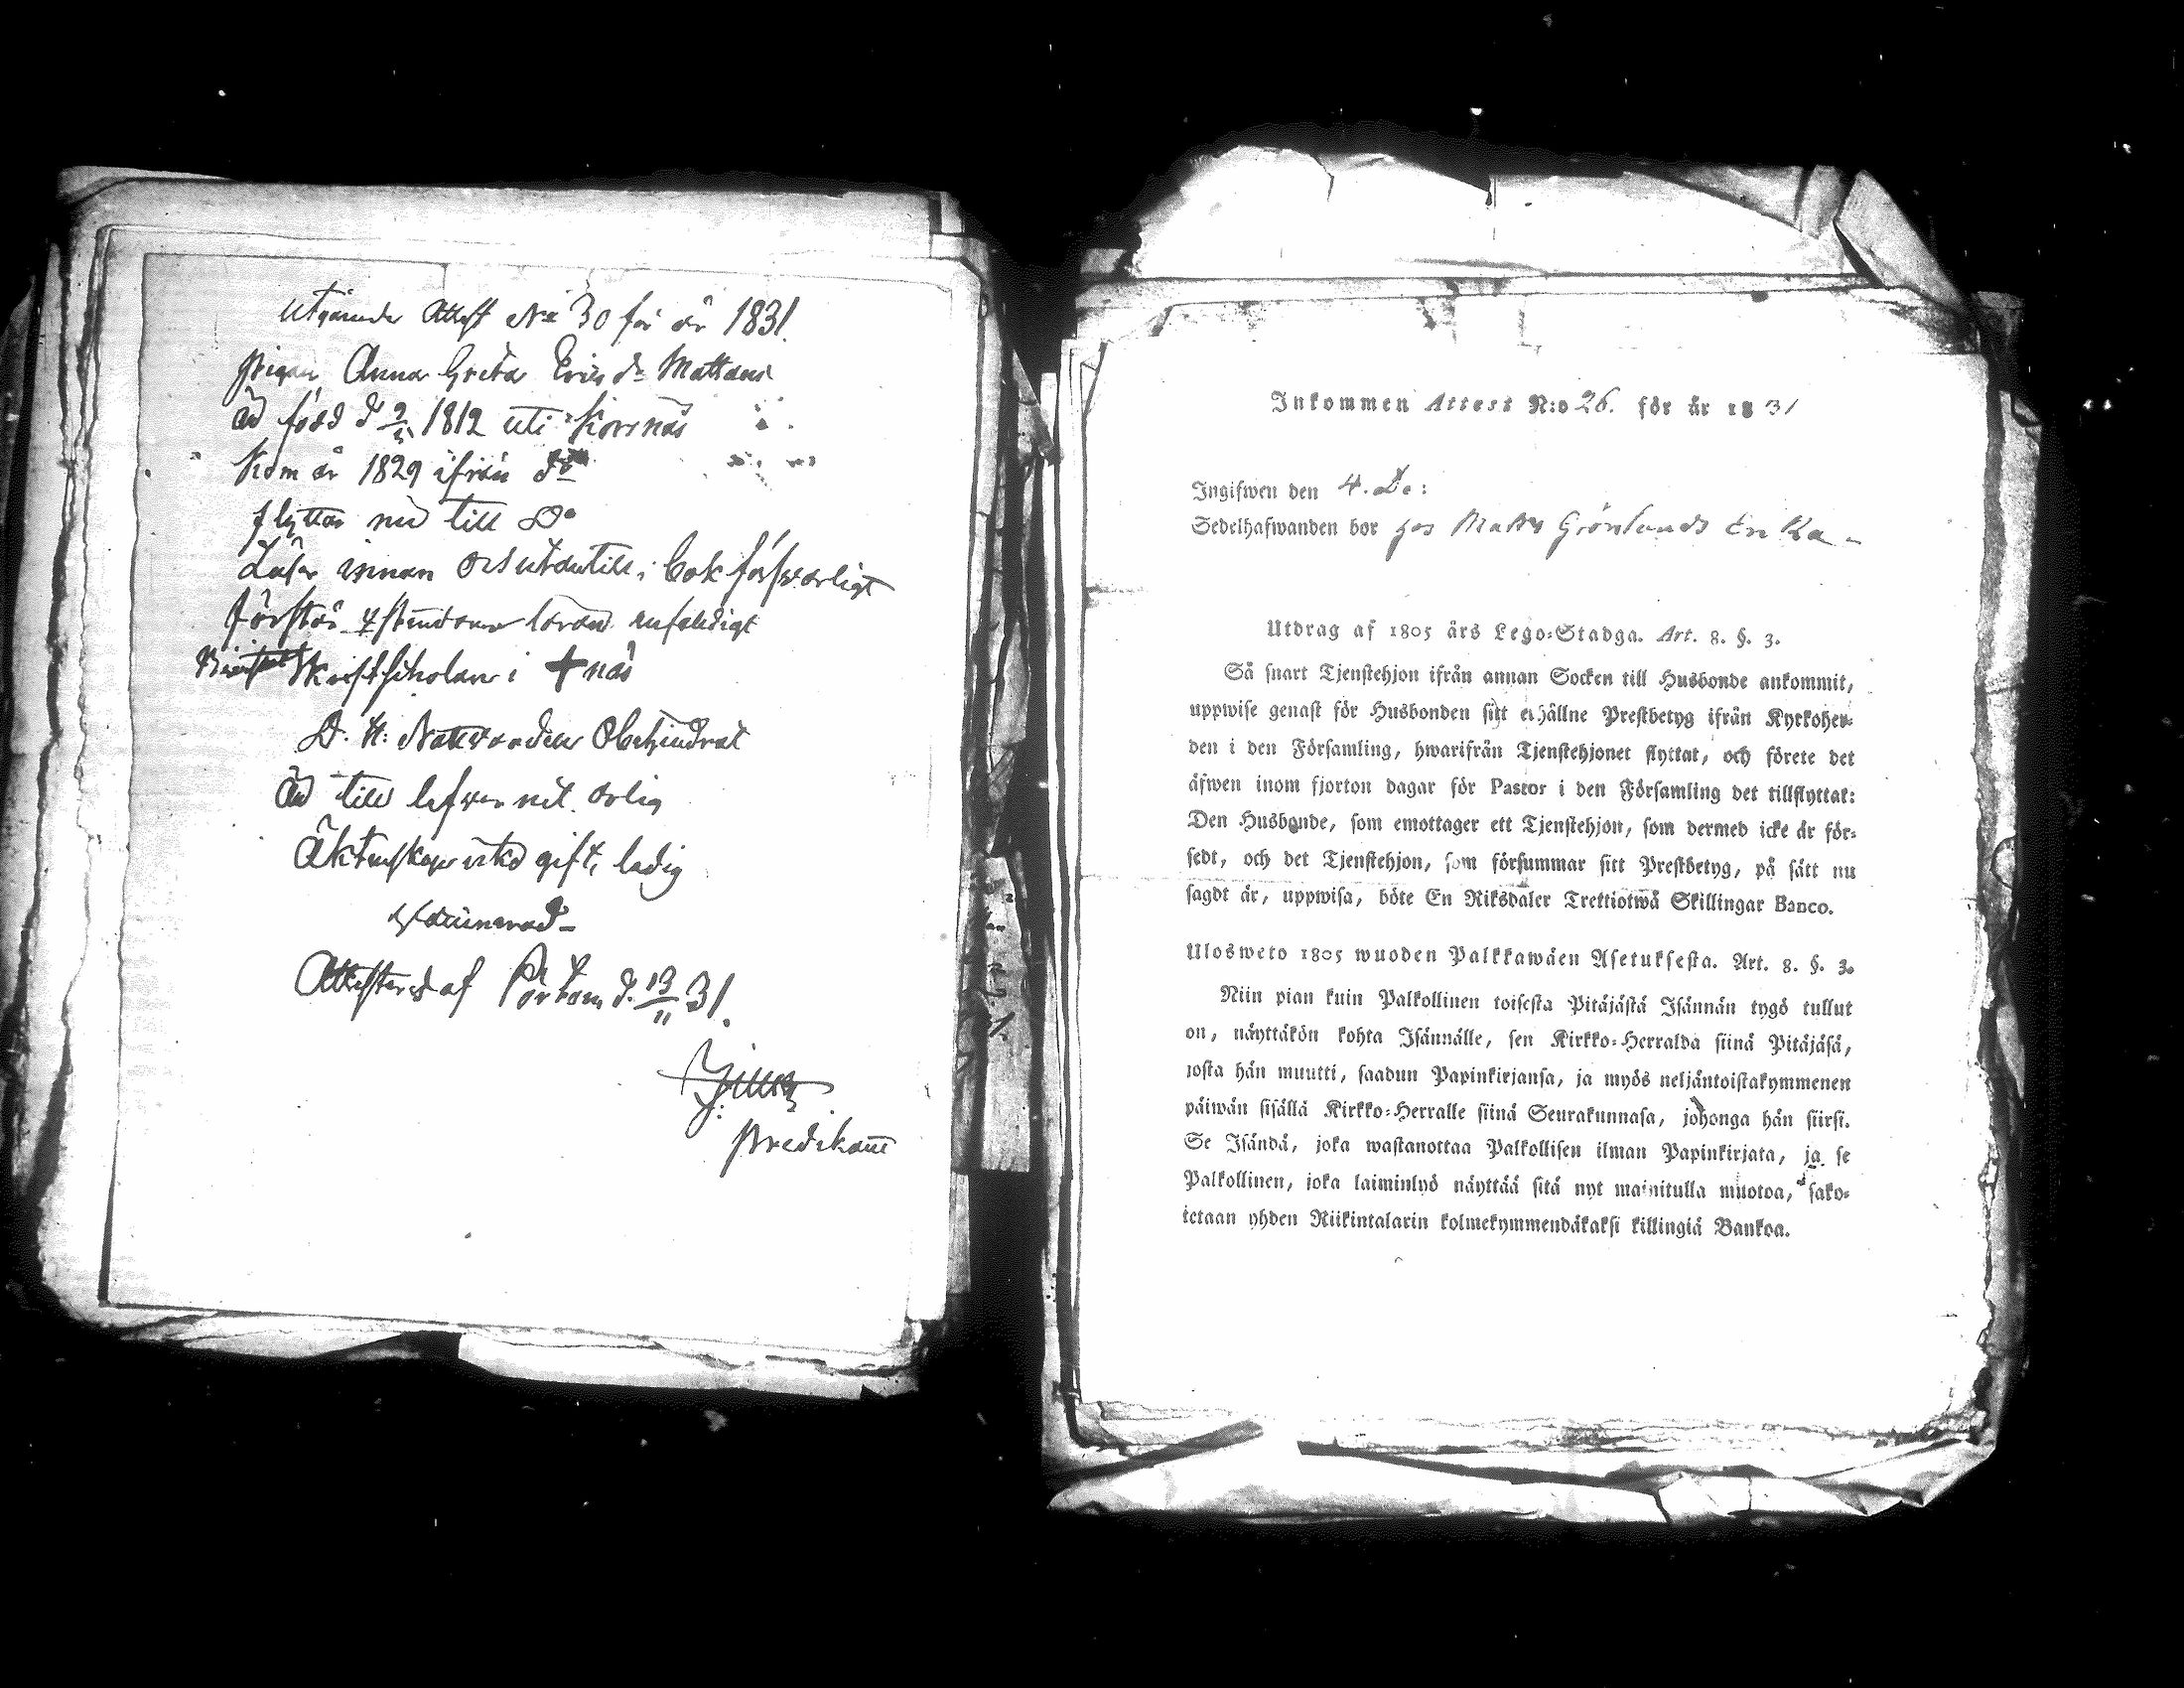 Utgående Attest No 30 för år 1831.
Pigan Anna Greta Ericsdr Mattans
är född d 2/5 1812 uti Korsnäs
Kom år 1829 ifrån do
flyttar nu till Do
Läser innan och utantill i bok försvarligt
Förstår Xstendoms läran enfaldigt
Skriftskolan i +näs
D. H. Nattvarden Obehindrat
är till lefvernet ärlig
Äktenskap till gift, ledig
Vaccinerad
Attesteras af Pörtom d. 13/11 31.
Predikant
Inkommen Attest N:o 26. för år 1831
Ingifwen den 4. De:
Sedelhafwanden bor hos Matts Grönlunds Enka
Utdrag af 1805 års Lego-Stadga. Art. 8. §. 3.
Så snart Tjenstehjon ifrån annan Socken till Husbonde ankommit,
uppwise genast för Husbonden sitt erhållne Prestbetyg ifrån Kyrkoher-
den i den Församling, hwarifrån Tjenstehjonet flyttat, och förete det
äfwen inom fjorton dagar för Pastor i den Församling det tillflyttat:
Den Husbonde, som emottager ett Tjenstehjon, som dermed icke är för-
sedt, och det Tjenstehjon, som försummar sitt Prestbetyg, på sätt nu
sagdt är, uppwisa, böte En Riksdaler Trettiotwå Skillingar Banco.
Ulosweto 1805 wuoden Palkkawäen Asetuksesta. Art. 8. §. 3.
Niin pian kuin Palkollinen toisesta Pitäjästä Isännän tygö tullut
on, näyttäkön kohta Isännälle, sen Kirkko-Herralda siinä Pitäjäsä,
josta hän muutti, saadun Papinkirjansa, ja myös neljäntoistakymmenen
päiwän sisällä Kirkko-Herralle siinä Seurakunnasa, johonga hän siirsi.
Se Isändä, joka wastanottaa Palkollisen ilman Papinkirjata, ja se
Palkollinen, joka laiminlyö näyttää sitä nyt mainitulla muotoa, sako-
tetaan yhden Riikintalarin kolmekymmendäkaksi killingiä Bankoa.